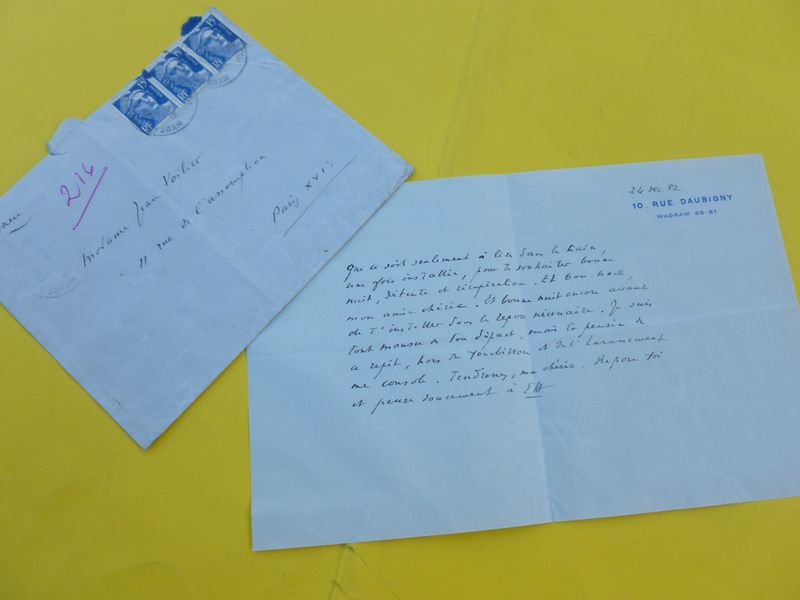 214
Madame Jean Voilier
11 rue de l'assomption
Paris XVI
24 dec 52
10, RUE DAUBIGNY
WAGRAM 85-81
Que ce soit seulement à lire dans le train,
une fois installée, pour te souhaiter bonne
nuit, détente et récupération. Et bon noël,
mon amie chérie. Et bonne nuit encore avant
de t'installer dans le repos nécessaire. Je suis
tout mousse de ton départ, mais la pensée de
ce répit, hors de et de l'harassement
me console. Tendresses, ma chérie. Repose toi
et pense doucement à EH
15
RF
15
RF
15
RF